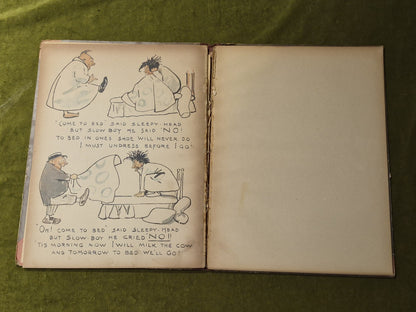 "COME TO BED" SAID SLEEPY-HEAD
BUT SLOW BOY HE SAID "NO"!
TO BED IN ONE'S SHOE WILL NEVER DO
I MUST UNDRESS BEFORE I GO".
"OH! COME TO BED" SAID SLEEPY-HEAD
BUT SLOW BOY HE CRIED NO!!
TIS MORNING NOW I WILL MILK THE COW
AND TOMORROW TO BED WE'LL GO!